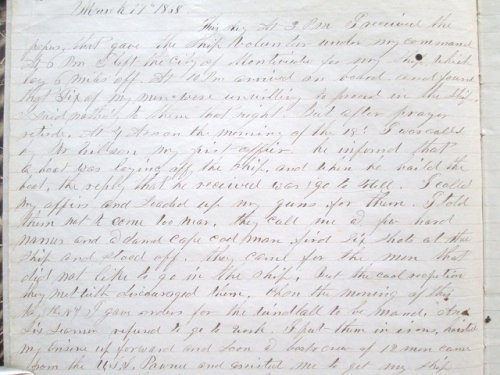 March 17th 18 8
This day at 3 PM I received the
papers that gave the Ship Volunter under my command
At 5 PM I left the City of Montivedeo for my Ship which
lay 6 miles off. At 10 PM arrived on board and found
that Six of my men were unwilling to proced in the Ship
I said nothing to them that night. But after prayer
retired. At 4 on the morning of the 18th I was called
by Mr my first officer. he informed that
a boat was laying off the Ship, and when he hailed the
boat, the reply that he received was (go to Hell. I called
my officers and loaded up my guns for them. I told
them not to come too near. they call me a hard
names and a damd Cape Cod man fired Six Shots at the
Ship and stood off. they came for the men that
did not like to go in the Ship, but the cool reception
they met with discouraged them. On the morning of the
I gave orders for the windlass to be mand. And
Six Seamen refused to go to work. I put them in irons, hoisted
my Ensine up forward and soon a boats crew of 12 men came
from the U.S.S. Pawnee and assisted me to get my Ship